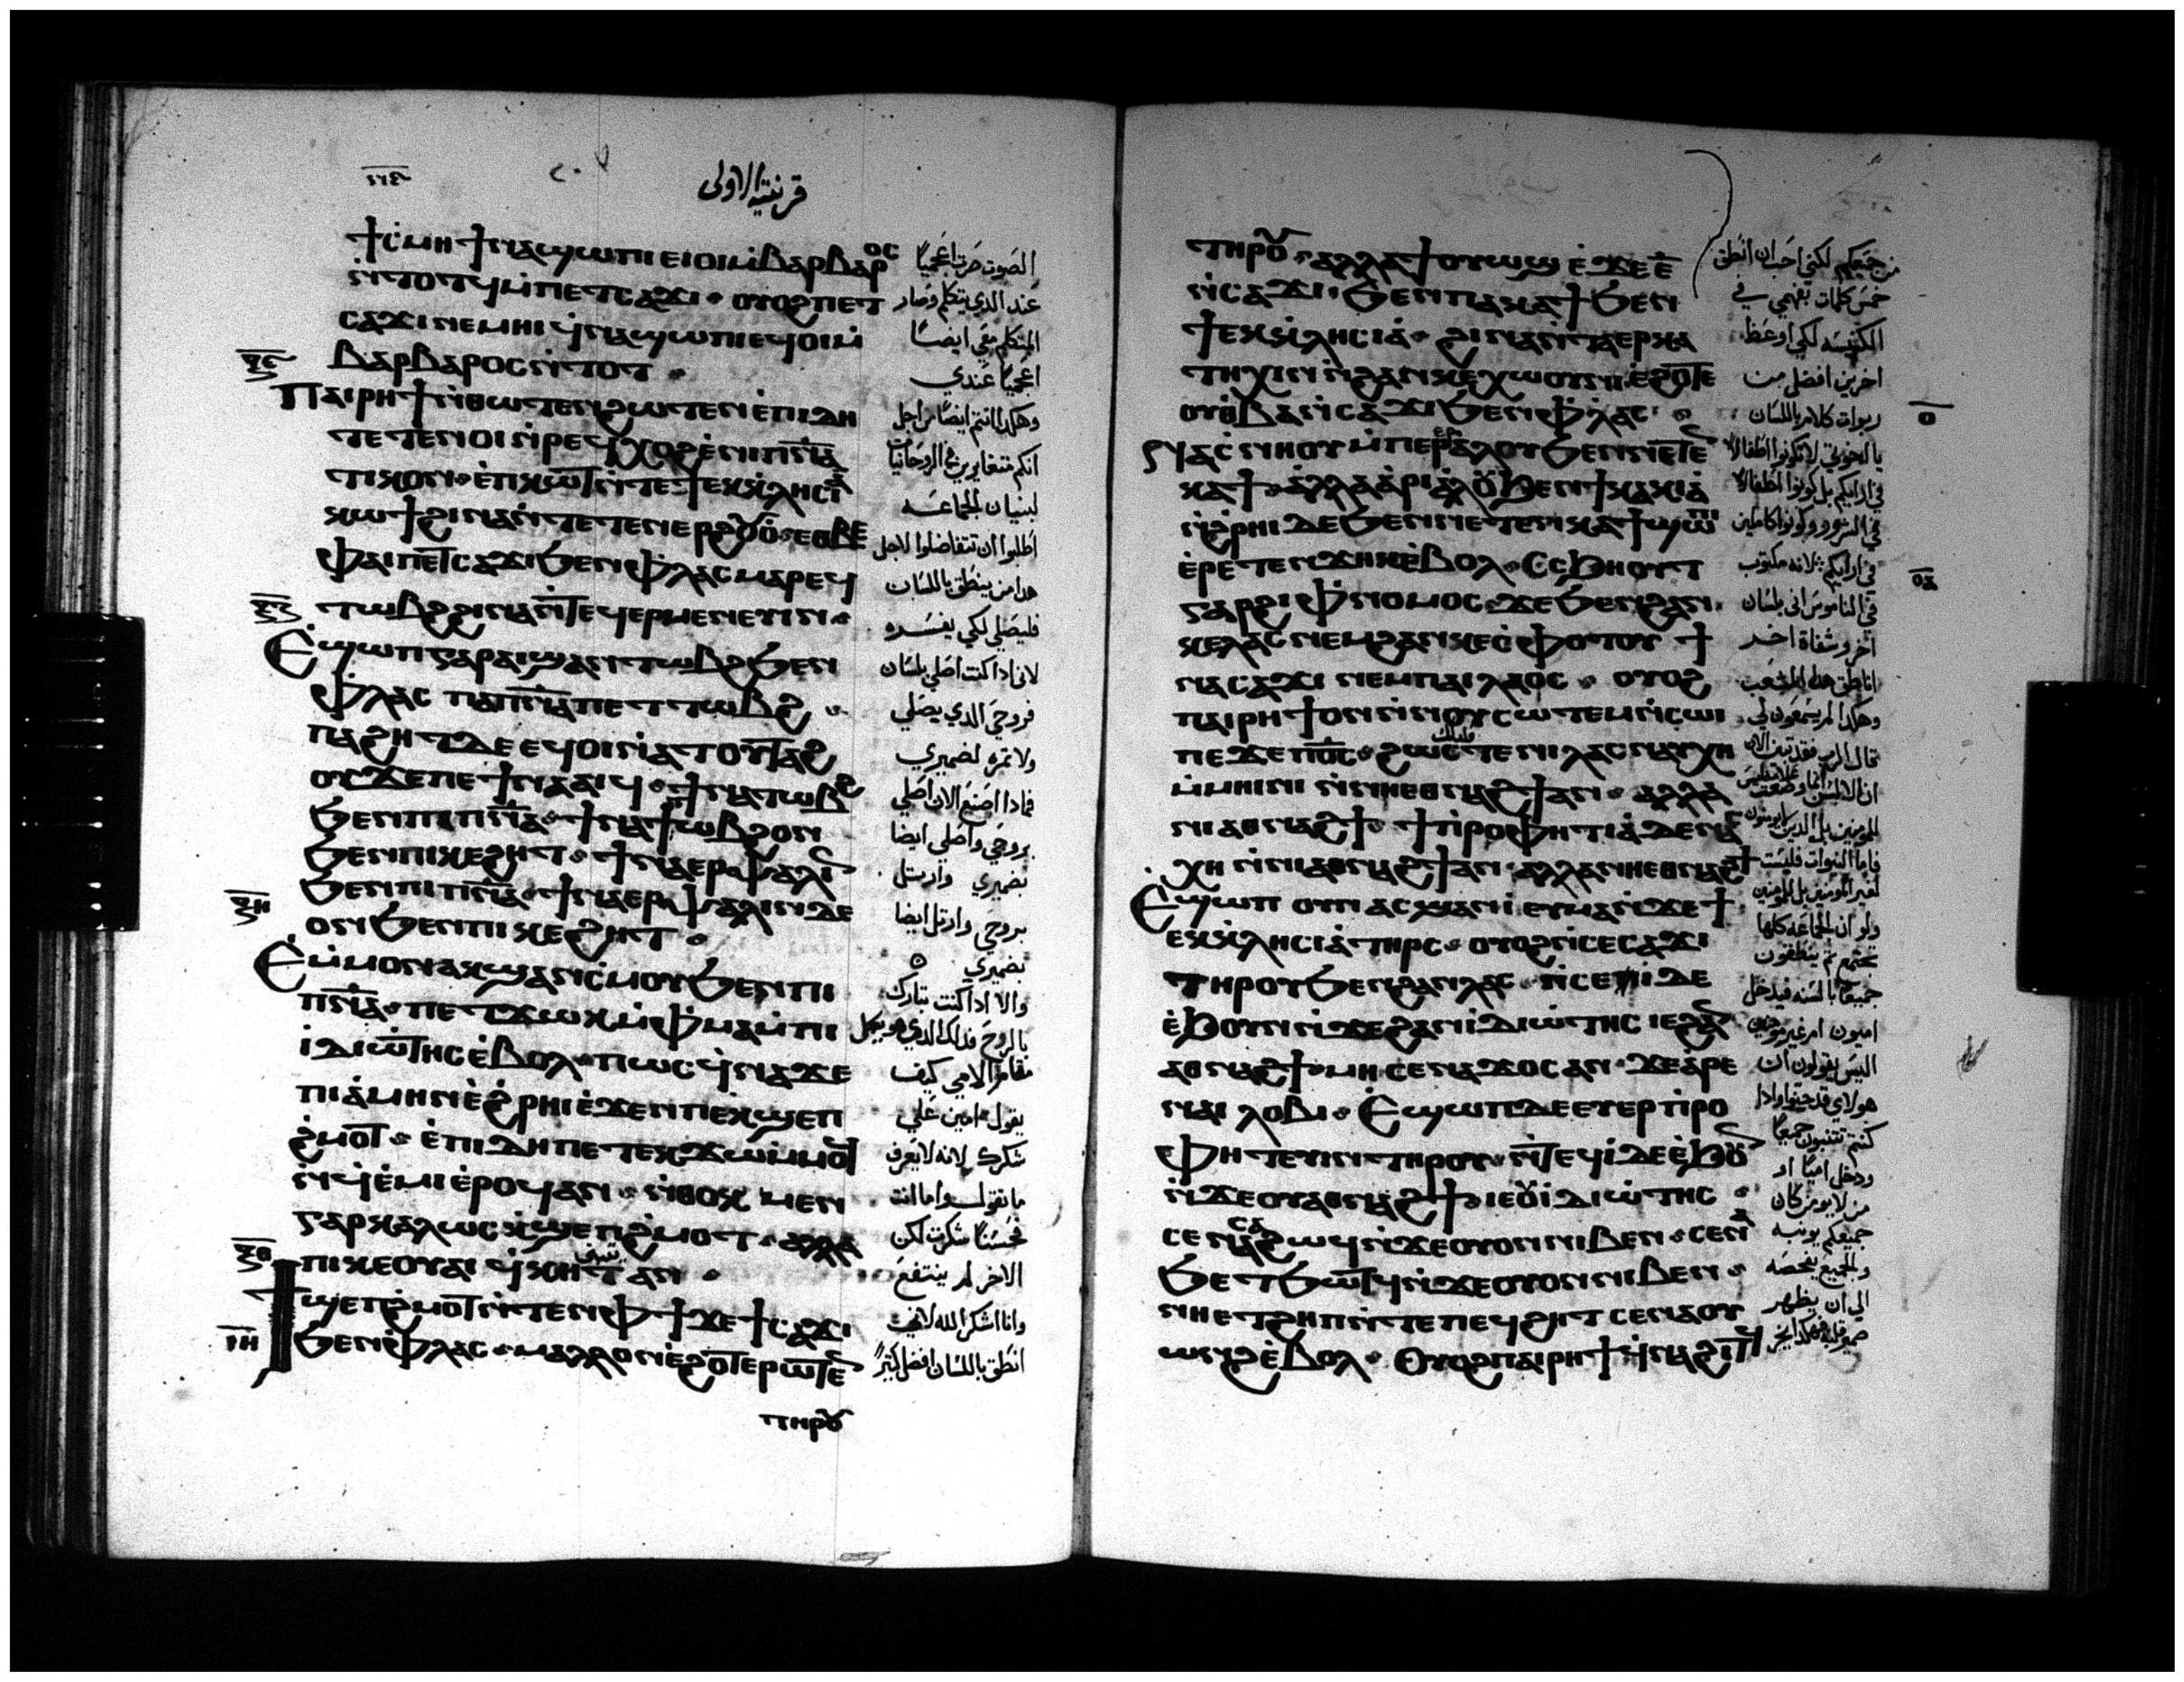 قرنتية الاولى
ϯⲥⲙⲏ ϯⲛⲁϣⲱⲡⲓ ⲉⲓⲟⲓ ⲙ̀ⲃⲁⲣⲃⲁⲣⲟⲥ
ⲛ̀ⲧⲟⲧϥ ⲙ̀ⲡⲉⲧⲥⲁϫⲓ ⲟⲩⲟϩ ⲡⲉⲧ
ⲥⲁϫⲓ ⲛⲉⲙⲏⲓ ϥ̀ⲛⲁϣⲱⲡⲓ ⲉϥⲟⲓ ⲙ̀
ⲃⲁⲣⲃⲁⲣⲟⲥ ⲛ̀ⲧⲟⲧ
ⲡⲁⲓⲣⲏϯ ⲛ̀ⲑⲱⲧⲉⲛ ϩⲱⲧⲉⲛ ⲉ̀ⲡⲓⲇⲏ
ⲧⲉⲧⲉⲛⲟⲓ ⲛ̀ⲣⲉϥⲭⲟϩ ⲉ̀ⲛⲓⲡⲛ̅ⲁ̅
ⲧⲓⲕⲟⲛ ⲉ̀ⲡⲓⲕⲱⲧ ⲛ̀ⲧⲉ ϯⲉⲕⲕⲗⲏⲥⲓⲁ̀
ⲕⲱϯ ϩⲓⲛⲁ ⲛ̀ⲧⲉⲧⲉⲛⲉⲣϩⲟⲩⲟ̀ ⲉⲑⲃⲉ
ⲫⲁⲓ ⲡⲉⲧⲥⲁϫⲓ ϧⲉⲛ ⲫ̀ⲗⲁⲥ ⲙⲁⲣⲉϥ
ⲧⲱⲃϩ ϩⲓⲛⲁ ⲛ̀ⲧⲉϥⲉⲣⲙⲉⲛⲉⲩⲓⲛ
Ⲉϣⲱⲡ ⲅⲁⲣ ⲁⲓϣⲁⲛⲧⲱⲃϩ ϧⲉⲛ
ⲫ̀ⲗⲁⲥ ⲡⲁⲡⲛ̅ⲁ̅ ⲡⲉⲧⲧⲱⲃϩ
ⲡⲁϩⲏⲧ ⲇⲉ ⲉϥⲟⲓ ⲛ̀ⲁⲧⲟⲩⲧⲁϩ
ⲟⲩ ϫⲉ ⲡⲉϯⲛⲁⲁⲓϥ ϯⲛⲁⲧⲱⲃϩ
ϧⲉⲛ ⲡⲓⲡⲛ̅ⲁ̅ ϯⲛⲁⲧⲱⲃϩ ⲟⲛ
ϧⲉⲛ ⲡⲓⲕⲉϩⲏⲧ ϯⲛⲁⲉⲣⲯⲁⲗⲓⲛ
ϧⲉⲛ ⲡⲓⲡⲛ̅ⲁ̅ ϯⲛⲁⲉⲣⲯⲁⲗⲓⲛ ⲇⲉ
ⲟⲛ ϧⲉⲛ ⲡⲓⲕⲉϩⲏⲧ
Ⲉⲙ̀ⲙⲟⲛ ⲁⲕϣⲁⲛⲥ̀ⲙⲟⲩ ϧⲉⲛ ⲡⲓ
ⲡⲛ̅ⲁ̅ ⲡⲉⲧϫⲱⲕ ⲙ̀ⲫ̀ⲙⲁ ⲙ̀ⲡⲓ
ⲓ̀ⲇⲓⲱ̀ⲧⲏⲥ ⲉ̀ⲃⲟⲗ ⲡⲱⲥ ϥ̀ⲛⲁϫⲉ
ⲡⲓⲁ̀ⲙⲏⲛ ⲉ̀ϩ̀ⲣⲏⲓ ⲉ̀ϫⲉⲛ ⲡⲉⲕϣⲉⲡ
ϩ̀ⲙⲟⲧ ⲉ̀ⲡⲓⲇⲏ ⲡⲉⲧⲉⲕϫⲱ ⲙ̀ⲙⲟϥ
ⲛ̀ϥ̀ⲉ̀ⲙⲓ ⲉ̀ⲣⲟϥ ⲁⲛ ⲛ̀ⲑⲟⲕ ⲙⲉⲛ
ⲅⲁⲣ ⲕⲁⲗⲱⲥ ⲕ̀ϣⲉⲡϩ̀ⲙⲟⲧ ⲁⲗⲗⲁ
ⲡⲓⲕⲉⲟⲩⲁⲓ ϥ̀ⲕⲏⲧ ⲁⲛ
ϯϣⲉⲡϩ̀ⲙⲟⲧ ⲛ̀ⲧⲉⲛ ⲫϯ ϫⲉ ϯⲥⲁϫⲓ
ϧⲉⲛ ⲫ̀ⲗⲁⲥ ⲙⲁⲗⲗⲟⲛ ⲉ̀ϩⲟⲧⲉⲣⲱⲧⲉⲛ
ⲧⲏⲣⲟⲩ
الصوت صرت اعجميًا
عند الذي يتكلم وصار
المتكلم معي ايضًا
اعجميًا عندي
وهكذا انتم ايضًا من اجل
انكم متغايرين في الروحانيات
لبنيان الجماعه
اطلبوا ان تتفاضلوا لاجل
هذا من ينطق باللسان
فليصلي لكي يفسره
لاني اذا كنت اصلي بلسان
فروحي الذي يصلي
ولا ثمره لضميري
فماذا اصنع الان اصلي
بروحي واصلي ايضا
بضميري وارتل
بروحي وارتل ايضا
بضميري
والا اذا كنت تبارك
بالروح فذلك الذي هو يكمل
مقام الامي كيف
يقول امين علي
شكرك لانه لا يعرف
ما تقول اما انت
فحسنًا شكرت لكن
الاخر لم ينتفع
وانا اشكر الله لاني
انطق باللسان افضل كثيرًا
ⲧⲏⲣⲟⲩ ⲁⲗⲗⲁ ϯⲟⲩⲱϣ ⲉ̀ϫⲉ ⲉ̅
ⲛ̀ⲥⲁϫⲓ ϧⲉⲛ ⲡⲁⲕⲁϯ ϧⲉⲛ
ϯⲉⲕⲕⲗⲏⲥⲓⲁ̀ ϩⲓⲛⲁ ⲛ̀ⲧⲁⲉⲣⲕⲁ
ⲧⲏⲭⲓⲛ ⲛ̀ϩⲁⲛⲕⲉⲭⲱⲟⲩⲛⲓ ⲉ̀ϩⲟⲧⲉ
ⲟⲩⲑⲃⲁ ⲛ̀ⲥⲁϫⲓ ϧⲉⲛ ⲫ̀ⲗⲁⲥ
ⲛⲁⲥⲛⲏⲟⲩ ⲙ̀ⲡⲉⲣⲉⲣⲁⲗⲟⲩ ϧⲉⲛ ⲛⲉⲧⲉⲛ
ⲕⲁϯ ⲁⲗⲗⲁ ⲁ̀ⲣⲓⲁ̀ⲗⲟⲩ ϧⲉⲛ ϯⲕⲁⲕⲓⲁ̀
ⲛ̀ϩ̀ⲣⲏⲓ ⲇⲉ ϧⲉⲛ ⲛⲉⲧⲉⲛⲕⲁϯ ϣⲱⲡⲓ
ⲉ̀ⲣⲉⲧⲉⲛϫⲏⲕ ⲉ̀ⲃⲟⲗ Ⲥⲥϧⲏⲟⲩⲧ
ⲅⲁⲣ ϩⲓ ⲫ̀ⲛⲟⲙⲟⲥ ϫⲉ ϧⲉⲛ ϩⲁⲛ
ⲕⲉⲗⲁⲥ ⲛⲉⲙ ϩⲁⲛⲕⲉⲥ̀ⲫⲟⲧⲟⲩ ϯ
ⲛⲁⲥⲁϫⲓ ⲛⲉⲙ ⲡⲁⲓⲗⲁⲟⲥ ⲟⲩⲟϩ
ⲡⲁⲓⲣⲏϯ ⲟⲛ ⲛ̀ⲛⲟⲩⲥⲱⲧⲉⲙ ⲛ̀ⲥⲱⲓ
ⲡⲉϫⲉ ⲡⲟ̅ⲥ̅ ϩⲱⲥⲧⲉ ⲛⲓⲗⲁⲥ ⲛⲁⲩⲭⲏ
ⲙ̀ⲙⲏⲓⲛⲓ ⲛ̀ⲛⲏⲉⲑⲛⲁϩϯ ⲁⲛ ⲁⲗⲗⲁ
ⲛⲓⲁⲑⲛⲁϩϯ ϯⲡ̀ⲣⲟⲫⲏⲧⲓⲁ̀ ⲇⲉ ⲛⲁⲥ
ⲭⲏ ⲛ̀ⲛⲓⲁⲑⲛⲁϩϯ ⲁⲛ ⲁⲗⲗⲁ ⲛⲏⲉⲑⲛⲁϩϯ
Ⲉϣⲱⲡ ⲟⲩⲛ ⲁⲥϣⲁⲛⲓ̀ ⲉⲩⲙⲁ ⲛ̀ϫⲉ ϯ
ⲉⲕⲕⲗⲏⲥⲓⲁ̀ ⲧⲏⲣⲥ ⲟⲩⲟϩ ⲛ̀ⲥⲉⲥⲁϫⲓ
ⲧⲏⲣⲟⲩ ϧⲉⲛ ϩⲁⲛⲗⲁⲥ ⲛ̀ⲥⲉⲓ̀ ⲇⲉ
ⲉ̀ϧⲟⲩⲛ ⲛ̀ϫⲉ ϩⲁⲛⲓ̀ⲇⲓⲱ̀ⲧⲏⲥ ⲓⲉ ϩⲁⲛ
ⲁⲑⲛⲁϩϯ ⲙⲏ ⲥⲉⲛⲁϫⲟⲥ ⲁⲛ ϫⲉ ⲁ̀ⲣⲉ
ⲛⲁⲓ ⲗⲟⲃⲓ Ⲉϣⲱⲡ ⲇⲉ ⲉⲩⲉⲣⲡ̀ⲣⲟ
ⲫⲏⲧⲉⲩⲓⲛ ⲧⲏⲣⲟⲩ ⲛ̀ⲧⲉϥⲓ̀ ⲇⲉ ⲉ̀ϧⲟⲩⲛ
ⲛ̀ϫⲉ ⲟⲩⲁⲑⲛⲁϩϯ ⲓⲉ ⲟⲩⲓ̀ⲇⲓⲱ̀ⲧⲏⲥ
ⲥⲉⲛⲁⲥⲁϩⲱϥ ⲛ̀ϫⲉ ⲟⲩⲟⲛ ⲛⲓⲃⲉⲛ ⲥⲉⲛⲁ
ϧⲉⲧϧⲱⲧϥ ⲛ̀ϫⲉ ⲟⲩⲟⲛ ⲛⲓⲃⲉⲛ
ⲛⲏⲉⲧϩⲏⲡ ⲛ̀ⲧⲉ ⲡⲉϥϩⲏⲧ ⲥⲉⲛⲁⲟⲩ
ⲱⲛϩ ⲉ̀ⲃⲟⲗ Ⲟⲩⲟϩ ⲡⲁⲓⲣⲏϯ ϥ̀ⲛⲁϩⲓⲧϥ
من جميعكم لكني احب ان انطق
خمس كلمات بفهمي في
الكنيسه لكي اوعظ
اخرين افضل من
ربوات كلام باللسان
يا اخوتي لا تكونوا اطفالًا
في ارائكم بل كونوا اطفالًا
في الشرور وكونوا كاملين
في ارائكم لانه مكتوب
في الناموس اني بلسان
اخر وشفاة اخر
اناطق هذا الشعب
وهكذا لم يسمعون لي
جميعًا بالسنه فيدخل
اميون او غير مومنين
اليس يقولون ان
هولاي قد جنوا واذا
كنتم تتنبون جميعًا
ودخل اميًا او
من لا يومن كان
جميعكم يونبه
والجميع يفحصه
الي ان يظهر